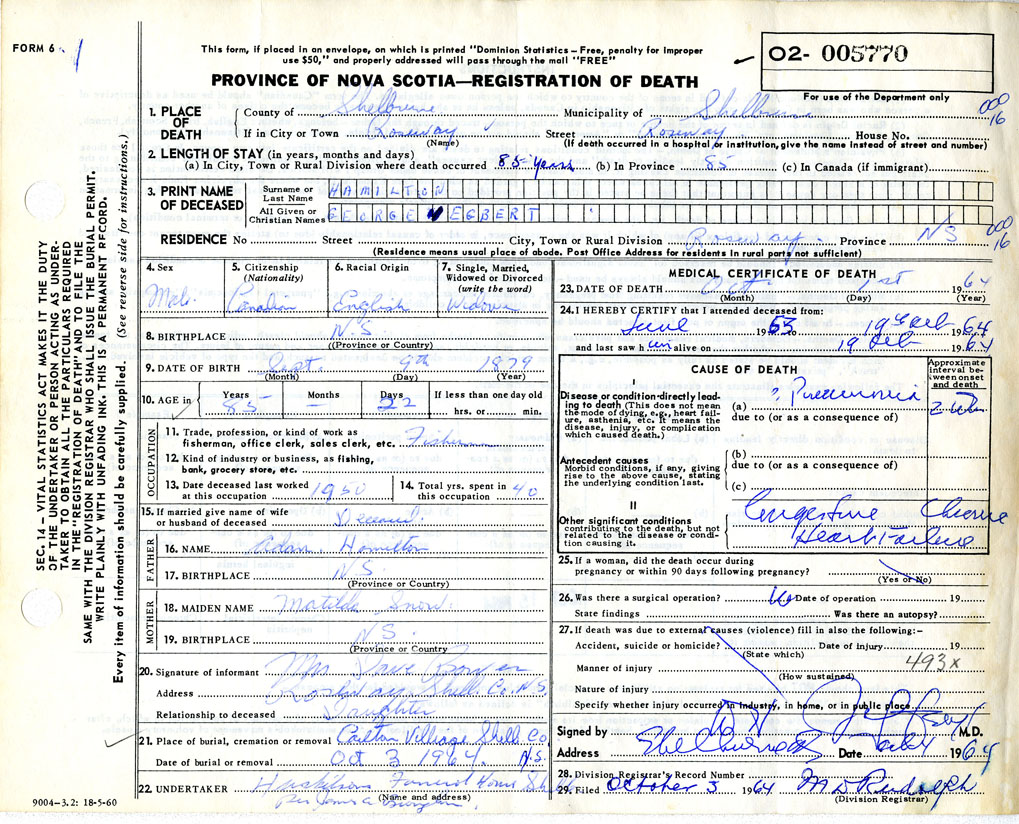 FORM 6 1
This form, if placed in an envelope, on which is printed "Dominion Statistics – Free, penalty for improper
use $50," and properly addressed will pass through the mail "FREE"
02- 005770
PROVINCE OF NOVA SCOTIA—REGISTRATION OF DEATH
For use of the Department only
SEC. 14 – VITAL STATISTICS ACT MAKES IT THE DUTY
OF THE UNDERTAKER OR PERSON ACTING AS UNDER-
TAKER TO OBTAIN ALL THE PARTICULARS REQUIRED
IN THE "REGISTRATION OF DEATH" AND TO FILE THE
SAME WITH THE DIVISION REGISTRAR WHO SHALL ISSUE THE BURIAL PERMIT.
WRITE PLAINLY WITH UNFADING INK. THIS IS A PERMANENT RECORD.
Every item of information should be carefully supplied. (See reverse side for instructions.)
1. PLACE OF DEATH County of Shelburne Municipality of Shelburne 000 16
If in City or Town Roseway Street Roseway House No.
(Name) (If death occurred in a hospital or institution, give the name instead of street and number)
2. LENGTH OF STAY (in years, months and days)
(a) In City, Town or Rural Division where death occurred 85 years (b) In Province 85 (c) In Canada (if immigrant)
3. PRINT NAME OF DECEASED Surname or Last Name HAMILTON
All Given or Christian Names GEORGE EGBERT
RESIDENCE No Street City, Town or Rural Division Roseway Province NS 000 16
(Residence means usual place of abode. Post Office Address for residents in rural parts not sufficient)
4. Sex 5. Citizenship (Nationality) 6. Racial Origin 7. Single, Married, Widowed or Divorced (write the word)
Male Canadian English Widower
8. BIRTHPLACE N.S.
((Province or Country)
9. DATE OF BIRTH Sept. 9th 1879
(Month) (Day) (Year)
10. AGE in Years Months Days If less than one day old
85 – – 22 hrs. or min.
OCCUPATION
11. Trade, profession, or kind of work as
fisherman, office clerk, sales clerk, etc. Fisherman
12. Kind of industry or business, as fishing,
bank, grocery store, etc.
13. Date deceased last worked at this occupation 1950 14. Total yrs. spent in this occupation 40
15. If married give name of wife
or husband of deceased Deceased.
FATHER
16. NAME Adam Hamilton
17. BIRTHPLACE N.S.
(Province or Country)
MOTHER
18. MAIDEN NAME Matilda Snow
19. BIRTHPLACE N.S.
(Province or Country)
20. Signature of informant Mrs Dave Bower
Address Shell. Co. N.S
Relationship to deceased Daughter
21. Place of burial, cremation or removal Carlton Village Shell Co
Date of burial or removal Oct 3 1964 N.S.
22. UNDERTAKER Huskilson Funeral Home
(Name and address)
9004-3.2: 18-5-60
MEDICAL CERTIFICATE OF DEATH
23. DATE OF DEATH Oct 1st 1964
(Month) (Day) (Year)
24. I HEREBY CERTIFY that I attended deceased from:
June 1963 to 19 1964
and last saw him alive on 19 1964
CAUSE OF DEATH
Approximate interval between onset and death
I
Disease or condition directly leading to death (This does not mean the mode of dying, e.g., heart failure, asthenia, etc. It means the disease, injury, or complication which caused death.)
(a) ? Pneumonia 2
due to (or as a consequence of)
Antecedent causes
Morbid conditions, if any, giving rise to the above cause, stating the underlying condition last.
(b)
due to (or as a consequence of)
(c)
II
Other significant conditions
contributing to the death, but not related to the disease or condition causing it.
Congestive Heart Failure Chronic
25. If a woman, did the death occur during
pregnancy or within 90 days following pregnancy?
(Yes or No)
26. Was there a surgical operation? No Date of operation 19
State findings Was there an autopsy?
27. If death was due to external causes (violence) fill in also the following:–
Accident, suicide or homicide? Date of injury 19
(State which) 493x
Manner of injury
(How sustained)
Nature of injury
Specify whether injury occurred in industry, in home, or in public place
Signed by M.D.
Address Shelburne Date 1964
28. Division Registrar's Record Number
29. Filed October 5 1964 M D Rudolph
(Division Registrar)